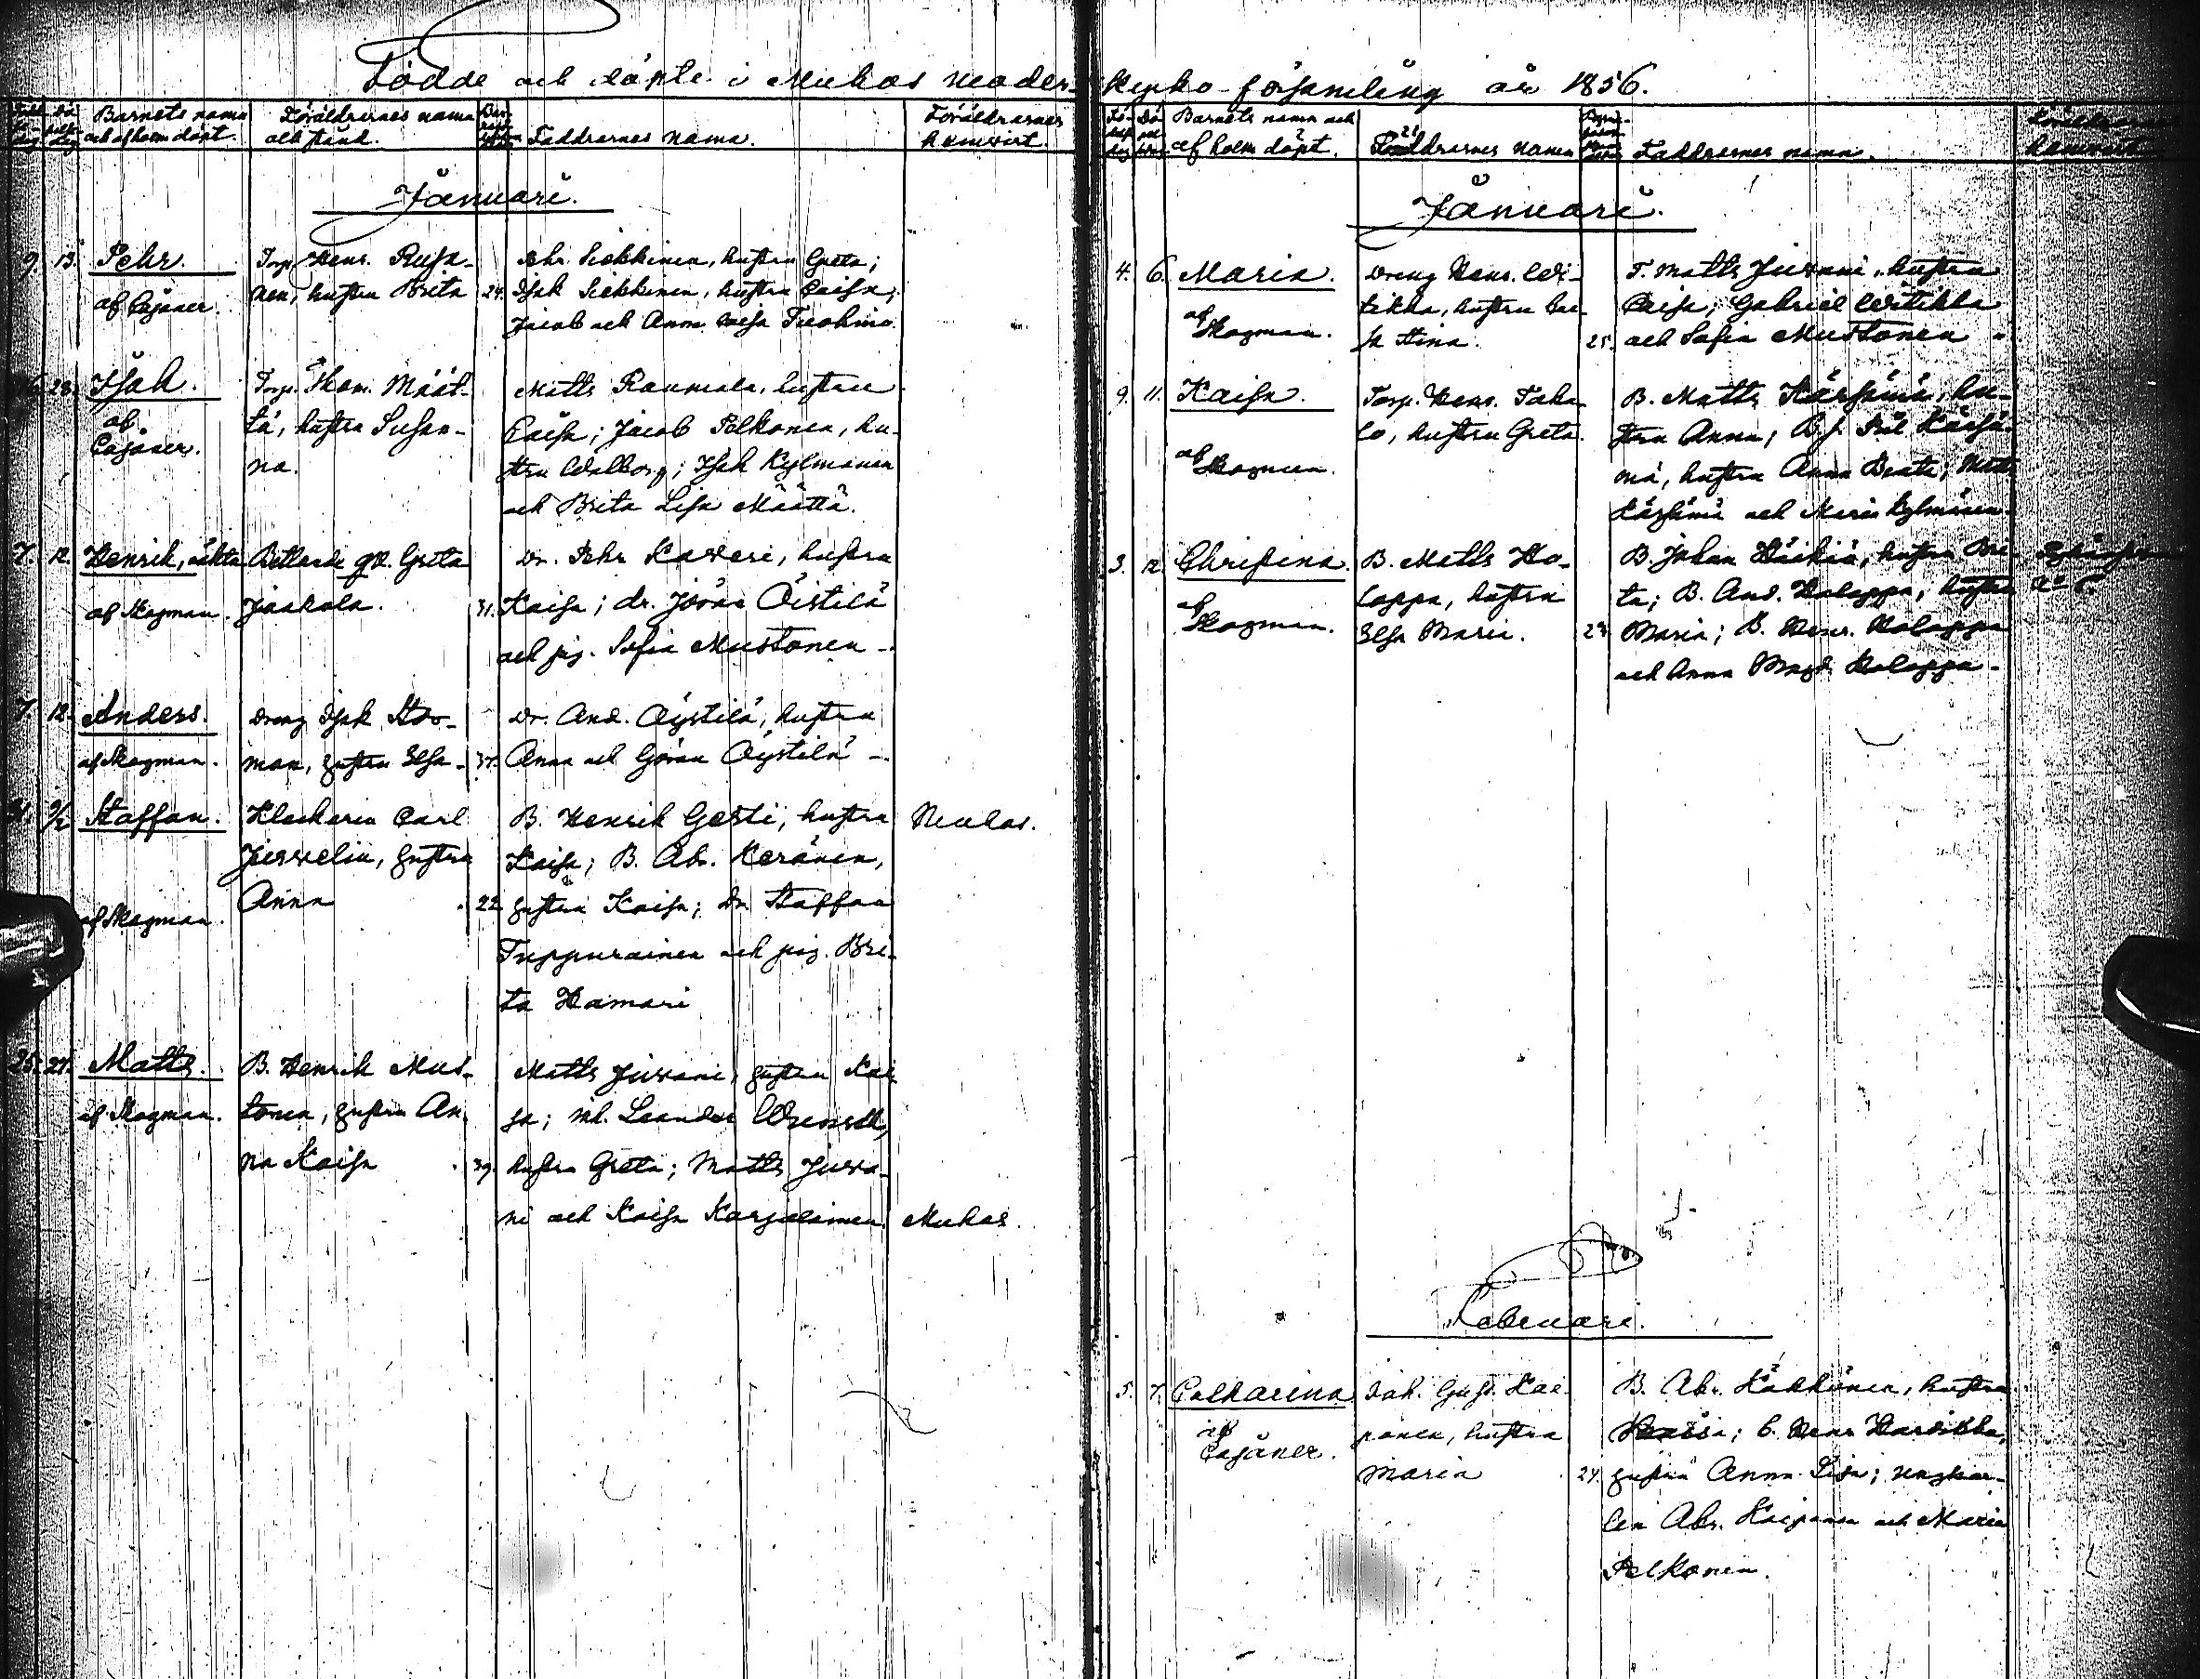 Födde och döpte i Muhos moder-kyrko-församling år 1856.
Barnets namn
och af hvem döpt.
Föräldrarnes namn
och stånd.
Faddrarnes namn.
Föräldrarnes
hemvist.
Januari.
9. 13. Pehr.
af Cajaner.
Torp. Henr. Rusa-
nen, hustru Brita 24.
Pehr Siekkinen, hustru Greta;
Isak Siekkinen, hustru Caisa;
Jacob och Anna Caisa Tuohino
28. Isak.
af
Cajaner.
Torp. Thom. Määt-
tä, hustru Susan-
na.
Matts Raumala, hustru
Caisa; Jacob Pelkonen, hu-
stru Walborg; Isak Kylmänen
och Brita Lisa Määttä.
7. 12. Henrik, oäkta
af Skogman.
Bettlande qv. Greta
Jaakola. 31.
Dr. Pehr Kaveri, hustru
Kaisa; dr. Jöran Öistilä
och pig. Sofia Mustonen -
7. 12. Anders.
af Skogman.
Dreng Isak Sto-
man, hustru Elsa - 37.
Dr. And. Öystilä, hustru
Anna och Göran Öystilä -
31. 9/2 Staffan.
af Skogman.
Klockaren Carl
Juvelin, hustru
Anna 22
B. Henrik Gesti, hustru
Kaisa; B. Ab. Keränen,
hustru Kaisa; Dr. Staffan
Tuppurainen och pig. Bri-
ta Hamari
Muhos.
25. 27. Matts.
af Skogman.
B. Henrik Mus-
tonen, hustru An-
na Kaisa 39.
Matts Juvani, hustru Kai
sa; ml. Leander
hustru Greta; Matts Juva-
ni och Kaisa Karjalainen
Muhos.
Barnets namn och
af hvem döpt.
Föräldrarnes namn
Faddrarnes namn.
Föräldrarnes
hemvist
Januari.
4. 6. Maria.
af
Skogman.
Dreng Henr. Wi-
tikka, hustru Cai-
sa Stina. 25.
T. Matts Juvani, hustru
Caisa; Gabriel Witikka
och Sofia Mustonen -
9. 11. Kaisa.
af
Skogman.
Torp. Henr. Taka-
lo, hustru Greta.
B. Matts Kärsämä, hu-
stru Anna; Kärsä-
mä, hustru Anna Beata; Matts
Kärsämä och Maria Kylmänen.
3. 12 Christina.
af
Skogman.
B. Matts Ho-
lappa, hustru
Elsa Maria. 23
B. Johan Häikiö, hustru Bri-
ta; B. And. Holappa, hustru
Maria; B. Henr. Holappa
och Anna Magd. Holappa -
Februari.
5. 7. Catharina
af
Cajaner.
Joh. Gust. Kai-
panen, hustru
Maria 24.
B. Abr. Kähkönen, hustru
; b. Henr. Harsikka,
hustru Anna Lisa; ungkar-
len Abr. Kaipanen och Maria
Pelkonen.